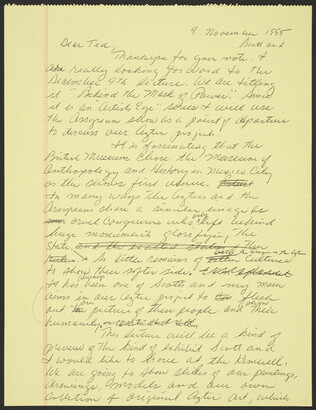 9 November 1995
Scott and
Dear Ted,
Thank you for your note &
are really looking forward to the
December 9th lecture. We are titling
it "Behind the Mask of Power". Since
it is an Artists Eye series & will use
the Assyrian show as a point of departure
to discuss our Aztec project.
It is fascinating that the
British Museum chose the Museum of
Anthropology and History in Mexico City
as the shows first venue.
In many ways the Aztecs and the
Assyrians share a similar image as
cruel conquerors who only left behind
huge monuments glorifying The
State, and the
So little remains of
to show their softer sides.
It has always been one of Scotts and my main
aims in our Aztec project to flesh
out the picture of these people and show their
humanity
This lecture will be a kind of
preview of the kind of exhibit Scott and
I would like to have at the Kimbell.
We are going to show slides of our paintings,
drawings, models and our own
collection of original Aztec Art, which